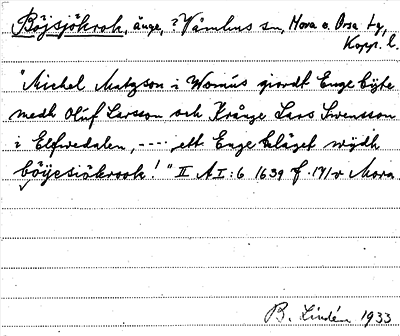 Böjsjökrok, änge, ? Våmhus sn, Mora o. Orsa tg,
Kopp. l.
"Michel Matzson i Womus giordt Enge byte
medh Oluf Larsson och Krånge Lars Swensson
i Elfwedalen, ---- ett Enge beläget widh
böijesiökrook! " II A I : 6 1639 f. 171v Mora
B. Lindén 1933